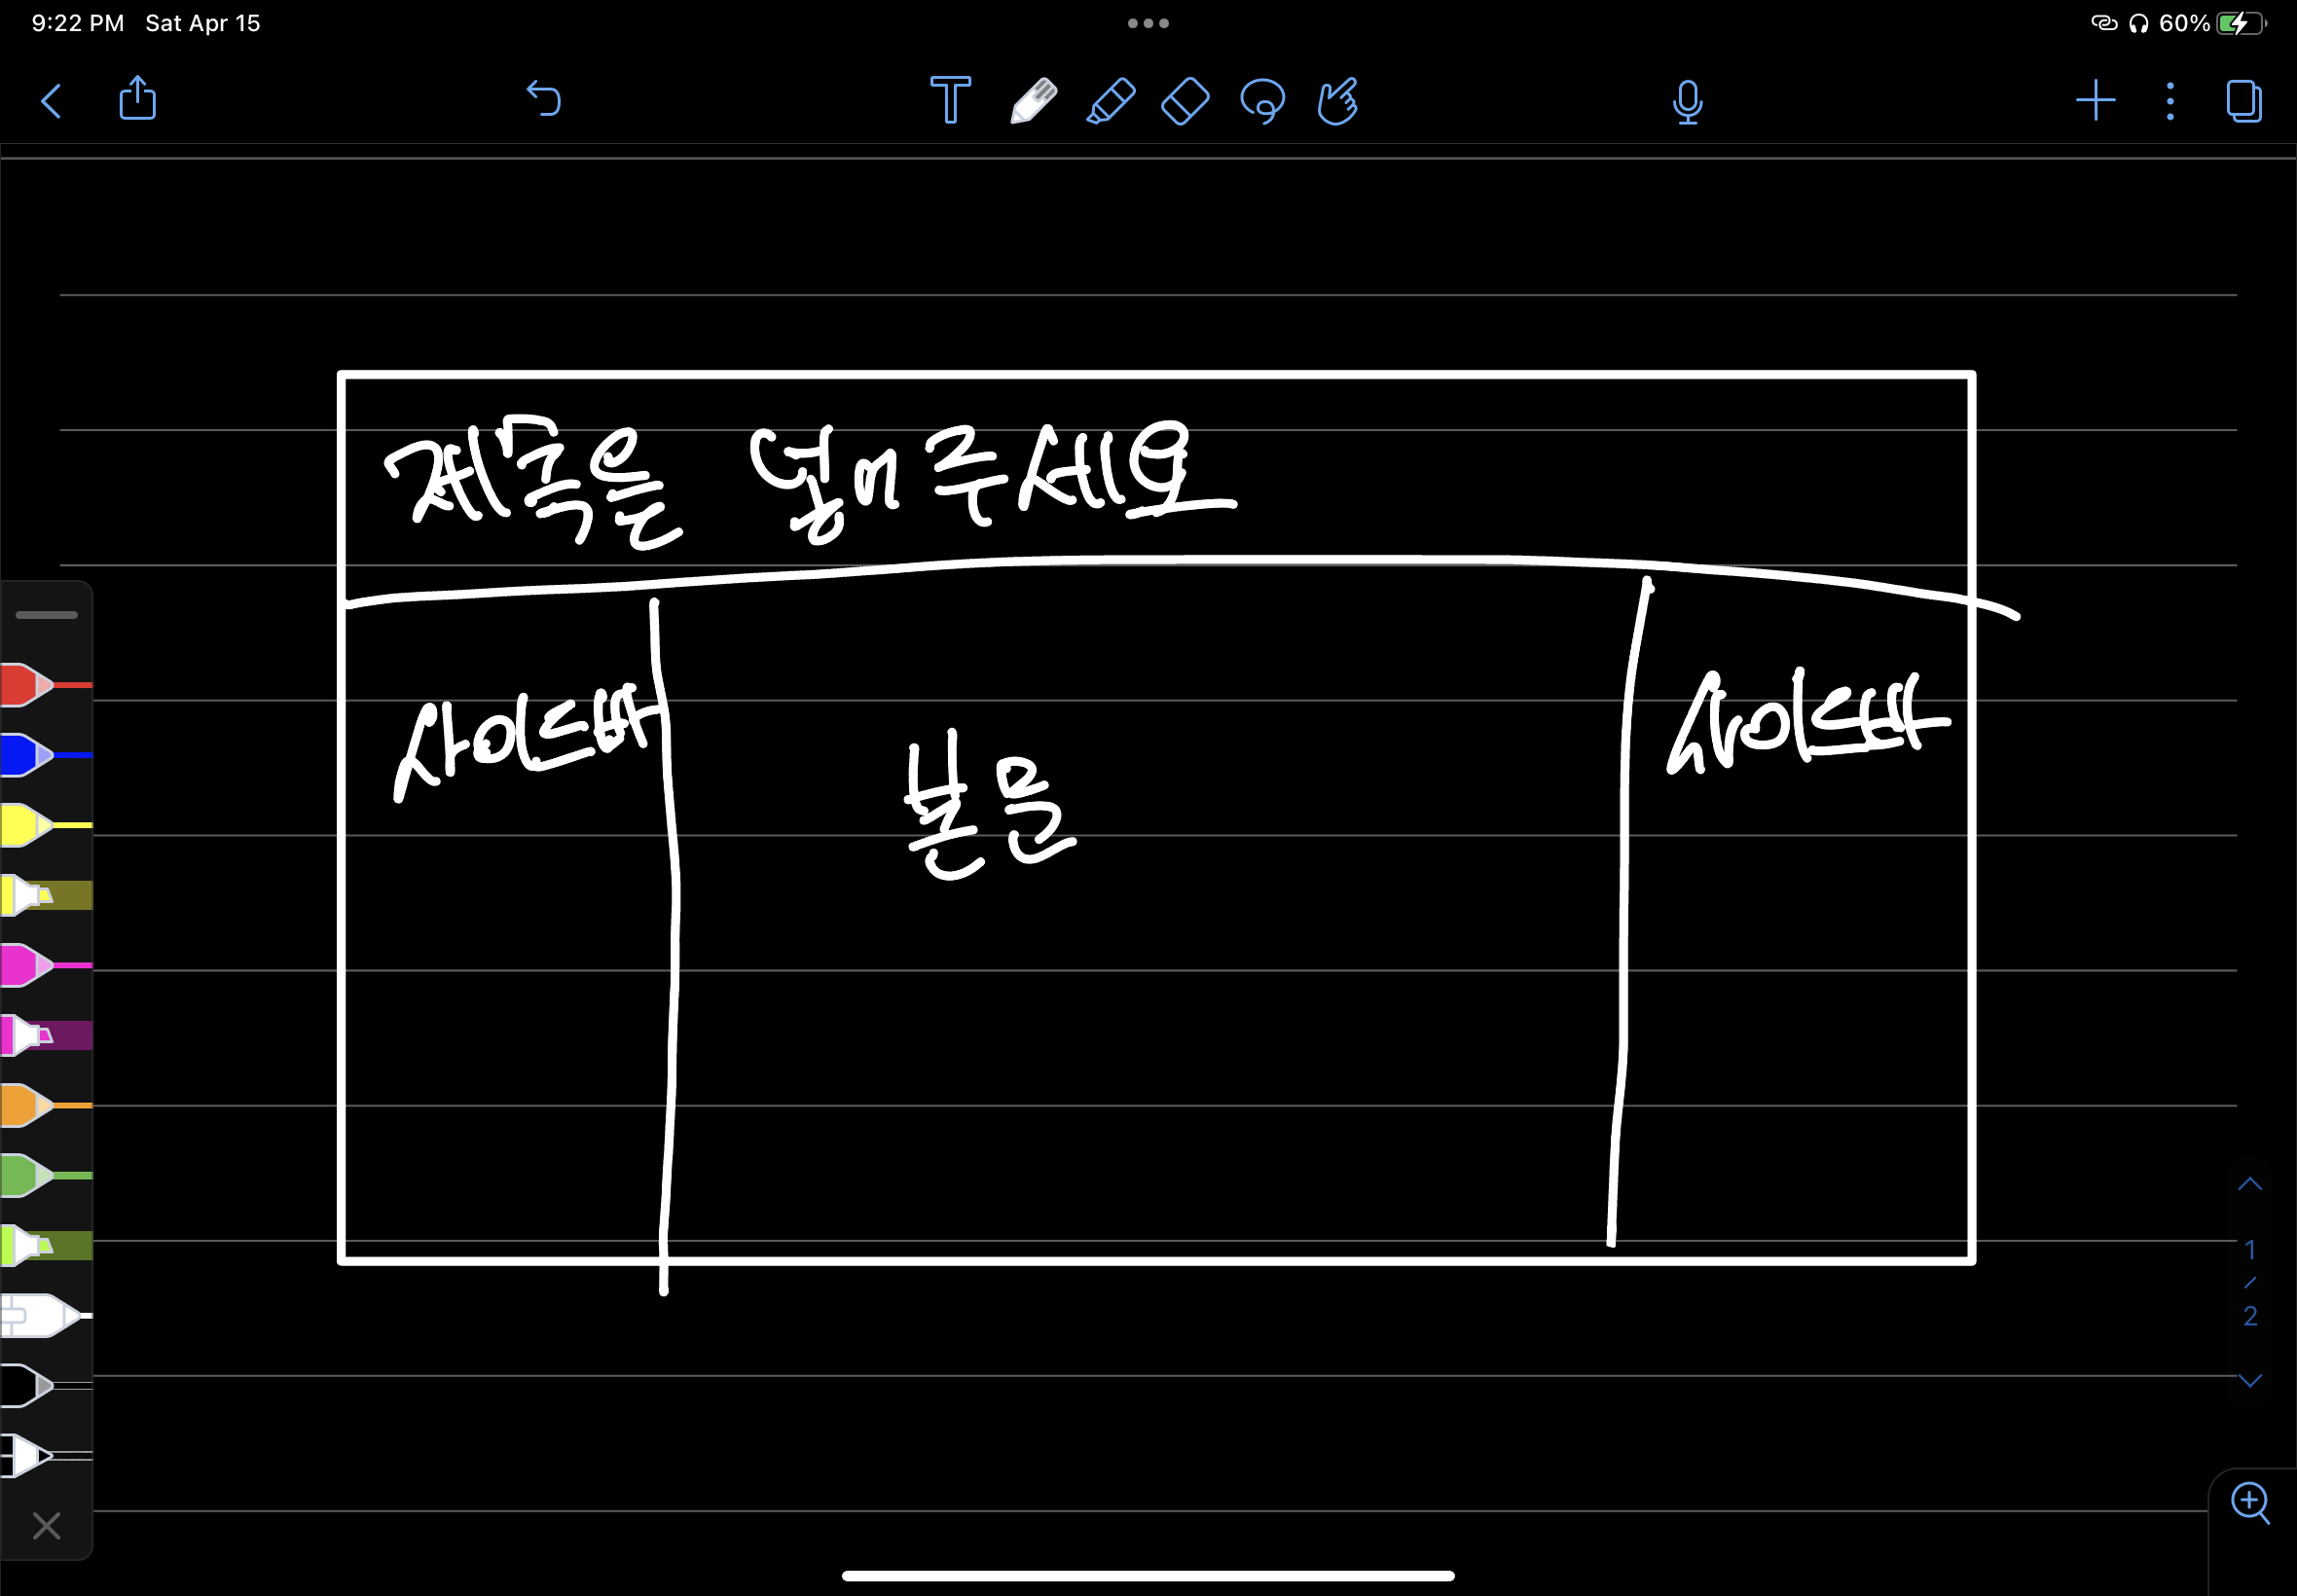 9:22 PM Sat Apr 15
60%
제목을 넣어주세요
사이드바
본문
사이드바
1
/
2